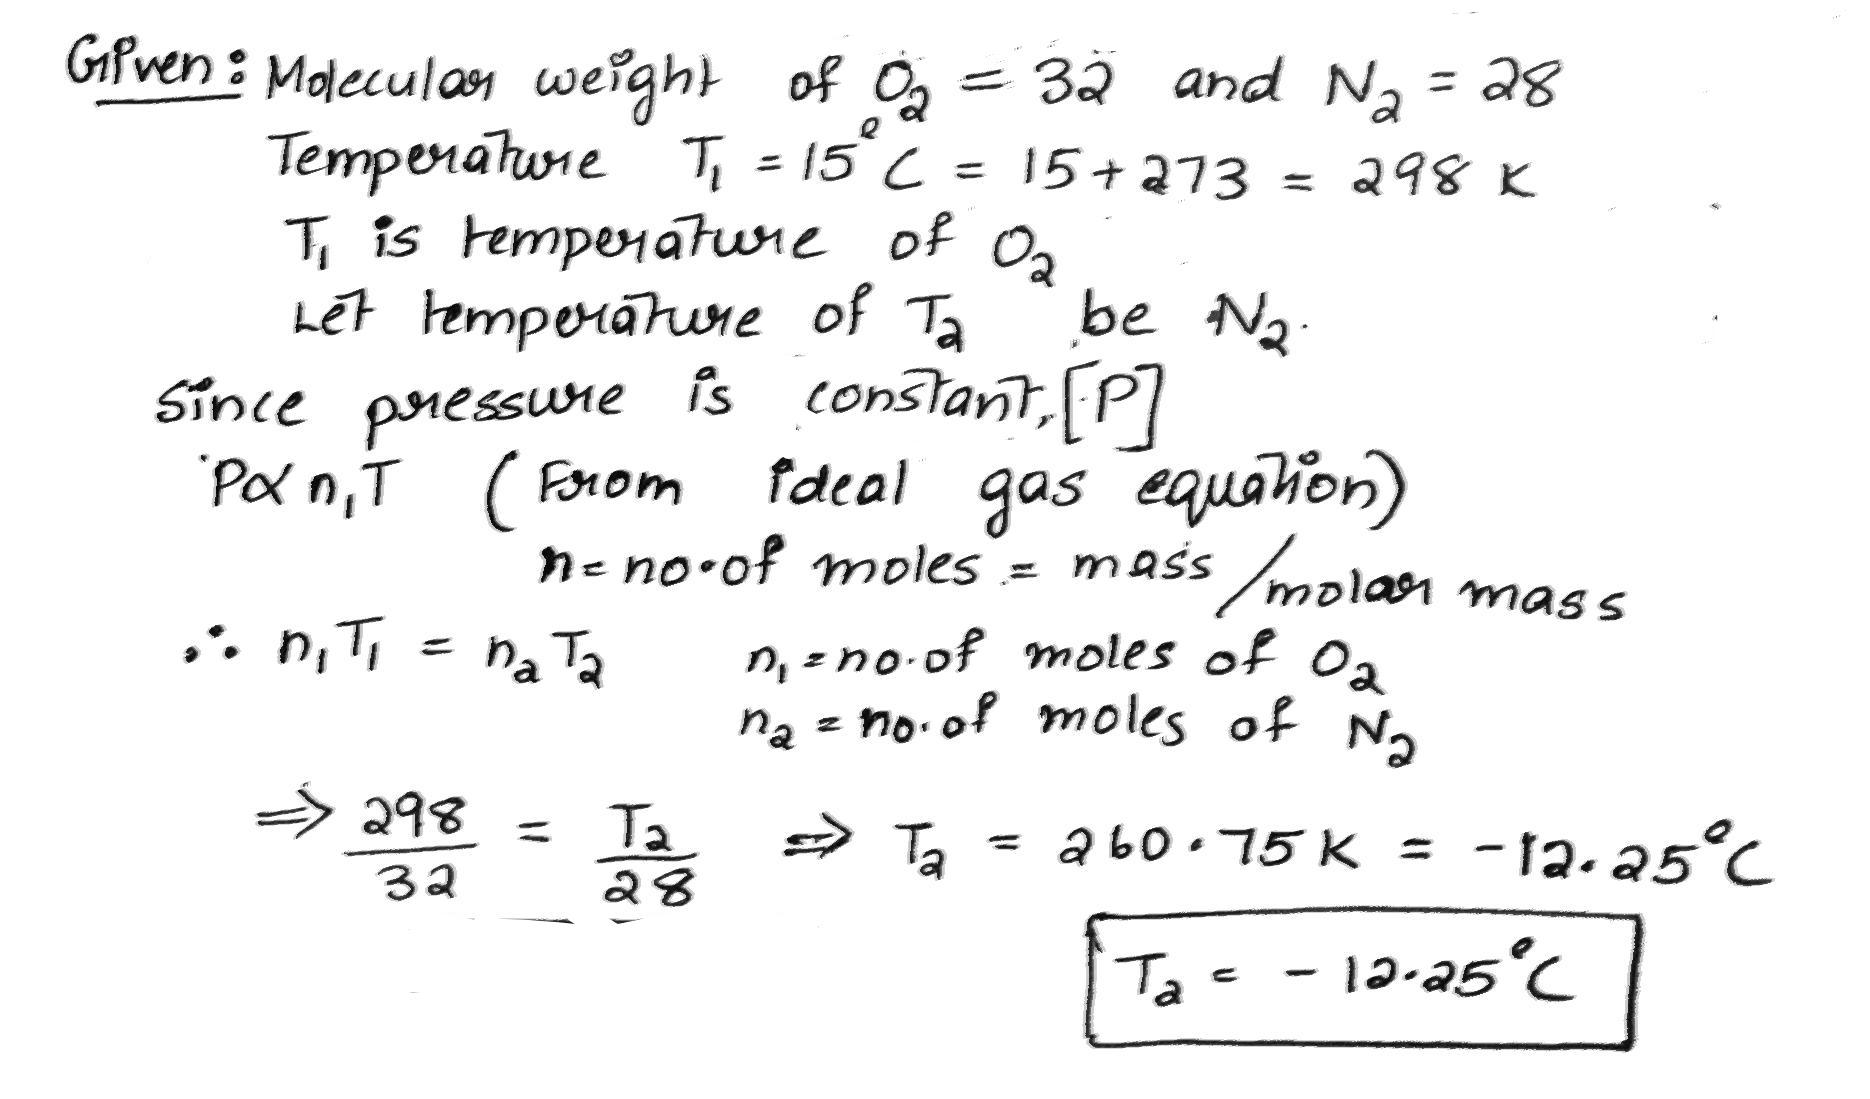 Given: Molecular weight of O₂ = 32 and N₂ = 28
Temperature T₁ = 15°C = 15+273 = 298 K
T₁ is temperature of O₂
Let temperature of T₂ be N₂.
Since pressure is constant, [P]
P∝ n₁T (From ideal gas equation)
n = no. of moles = mass/molar mass
∴ n₁T₁ = n₂T₂ n₁ = no. of moles of O₂
n₂ = no. of moles of N₂
⇒ 298/32 = T₂/28 ⇒ T₂ = 260.75 K = -12.25°C
T₂ = -12.25°C